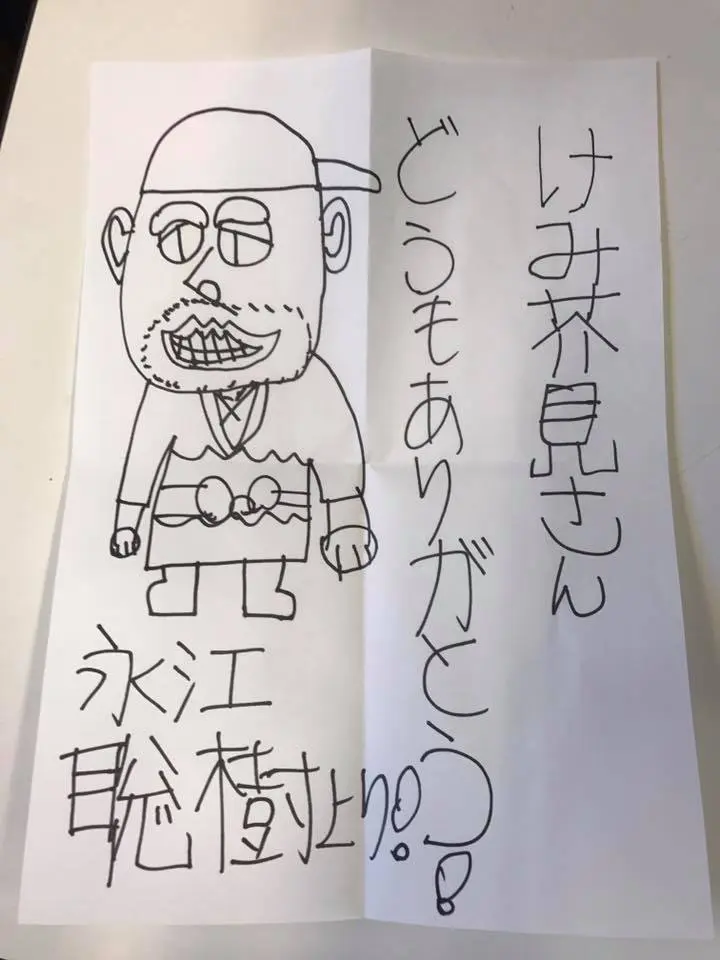 けみ芥見さん
どうもありがとう!
永江
聡樹より!